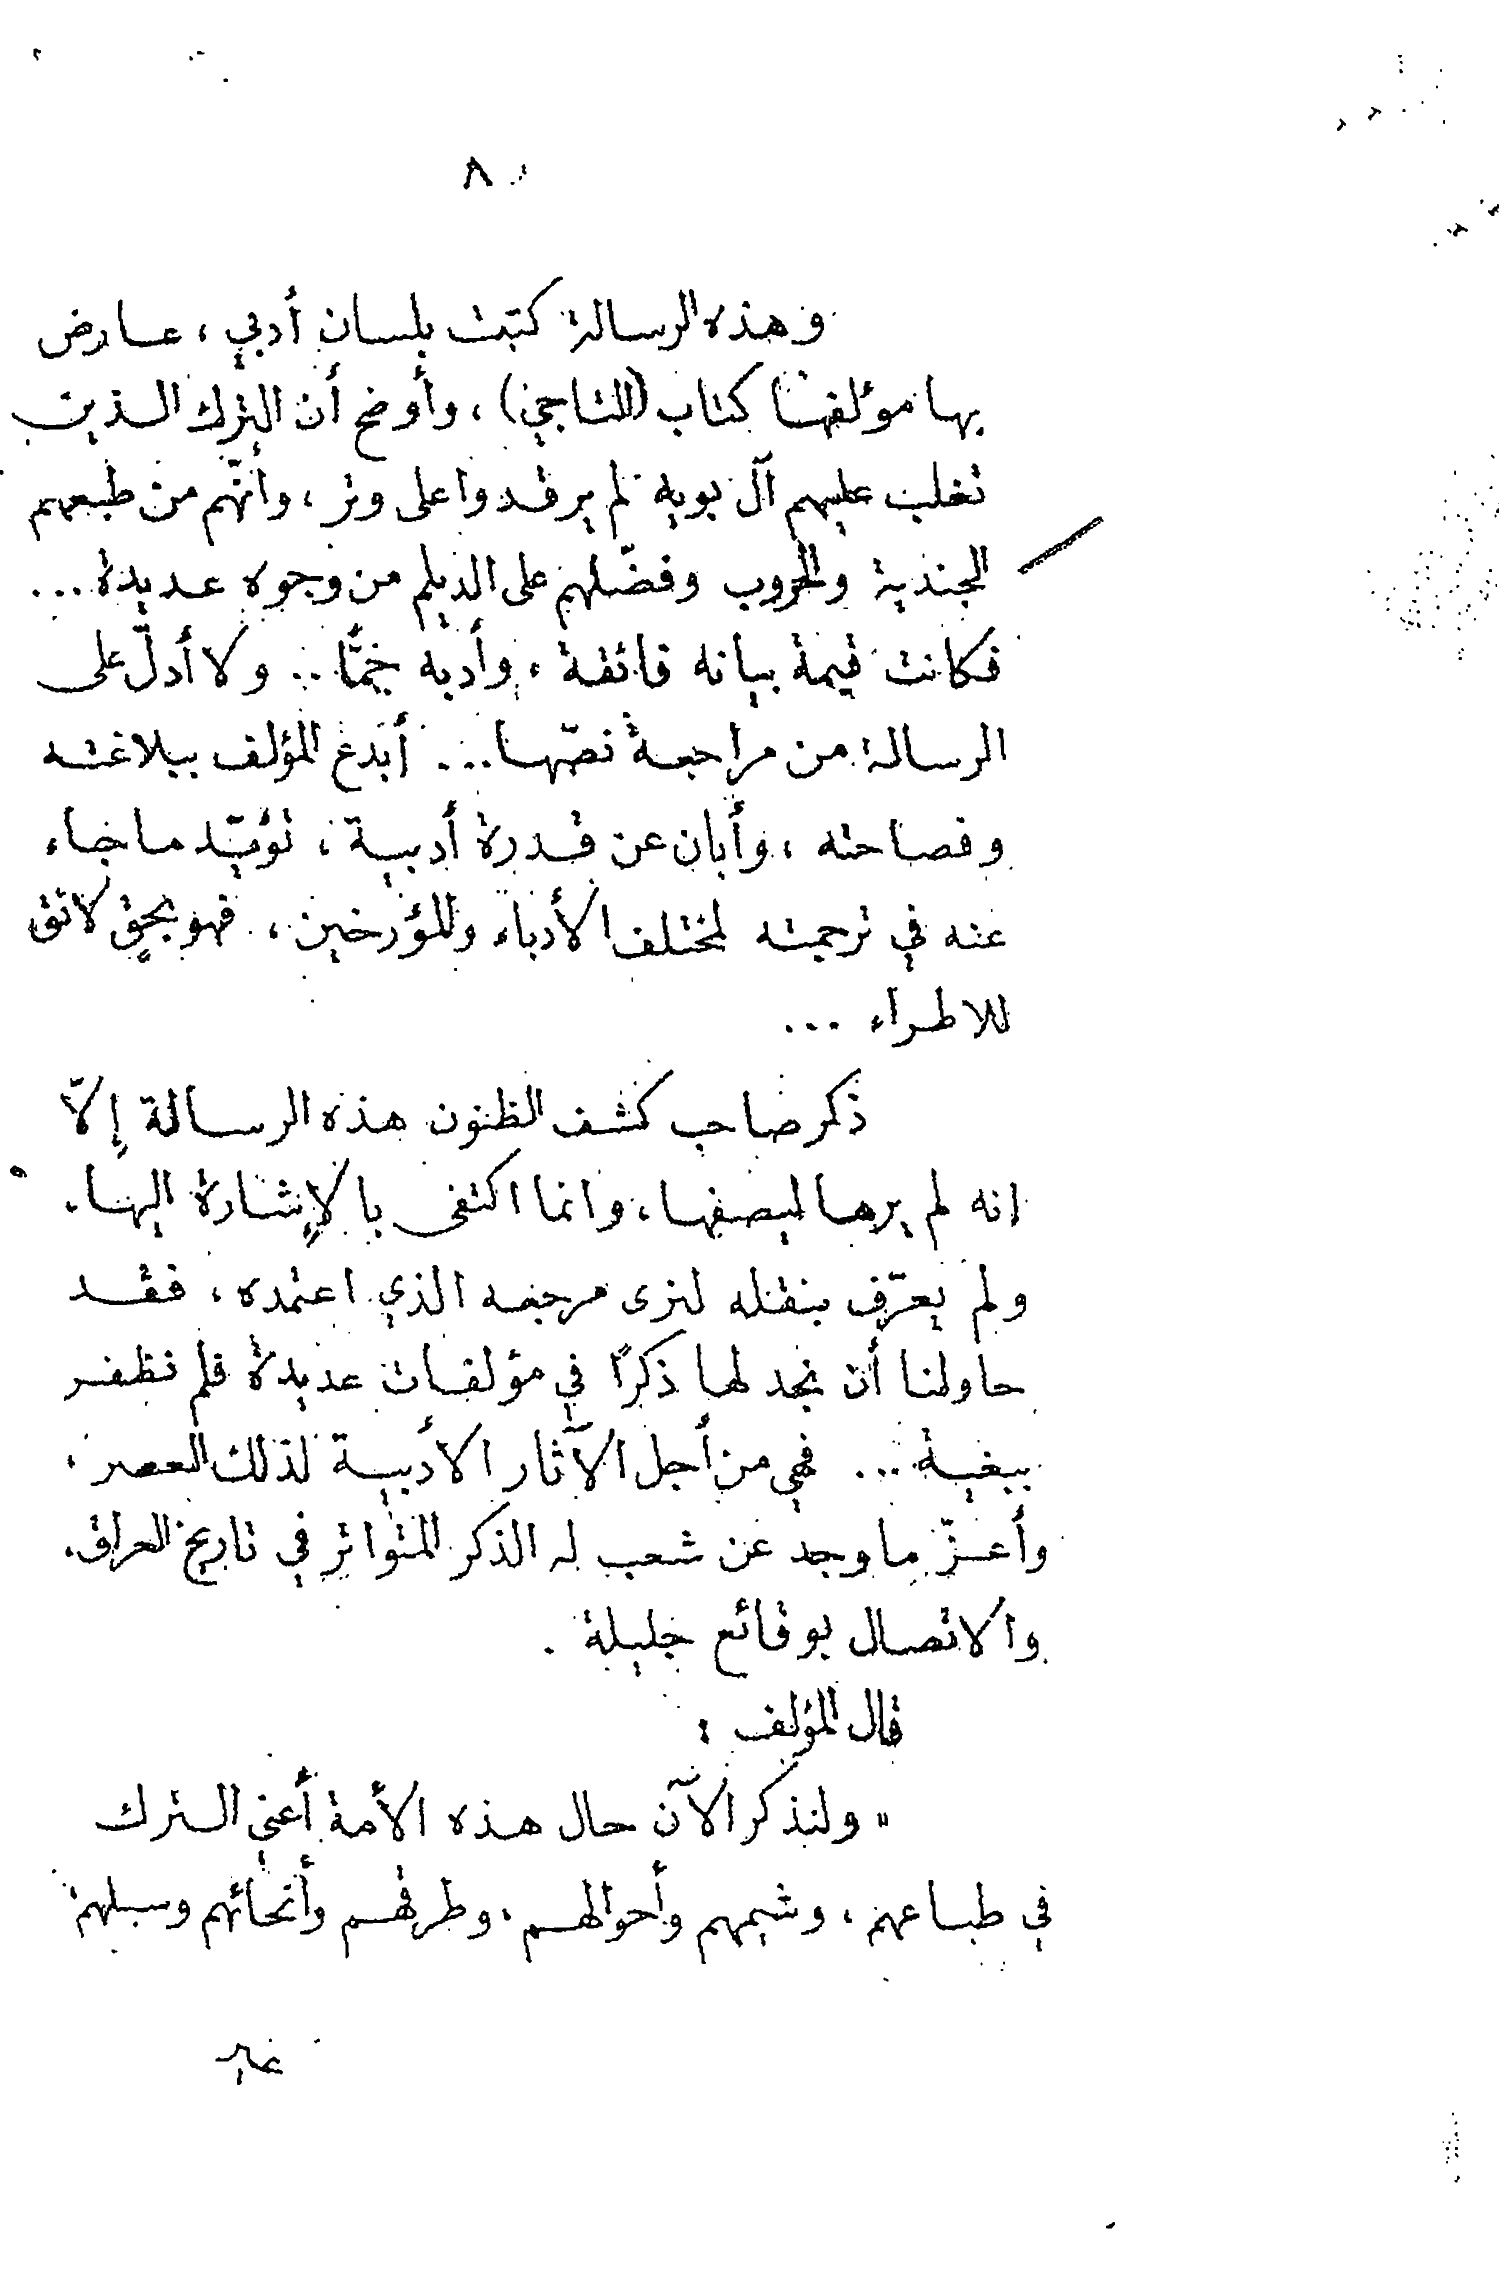 ٨
وهذه الرسالة كتبت بلسان أدبي ، عارض
بها مؤلفها كتاب (التاجي) ، وأوضح أن الترك الذين
تغلب عليهم آل بويه لم يرقدوا على وتر ، وأنهم من طبعهم
الجندية والحروب وفضّلهم على الديلم من وجوه عديدة ...
فكانت قيمة بيانه فائقة ، وأدبه جمًّا .. ولا أدلّ على
الرسالة من مراجعة نصّها ... أبدع المؤلف ببلاغته
وفصاحته ، وأبان عن قدرة أدبية ، تؤيّد ما جاء
عنه في ترجمته لمختلف الأدباء والمؤرخين ، فهو بحق لائق
للاطراء ...
ذكر صاحب كشف الظنون هذه الرسالة إلاّ
انه لم يرها ليصفها ، وانما اكتفى بالإشارة اليها .
ولم يعرّف بنقله لنرى مرجعه الذي اعتمده ، فقد
حاولنا أن نجد لها ذكرًا في مؤلفات عديدة فلم نظفر
ببغية ... فهي من أجل الآثار الأدبية لذلك العصر ،
وأعزّ ما وجد عن شعب له الذكر المتواتر في تاريخ العراق .
والاتصال بوقائع جليلة .
قال المؤلف :
" ولنذكر الآن حال هذه الأمة أعني الترك
في طباعهم ، وشيمهم وأحوالهم ، وطرقهم وأنحائهم وسبلهم